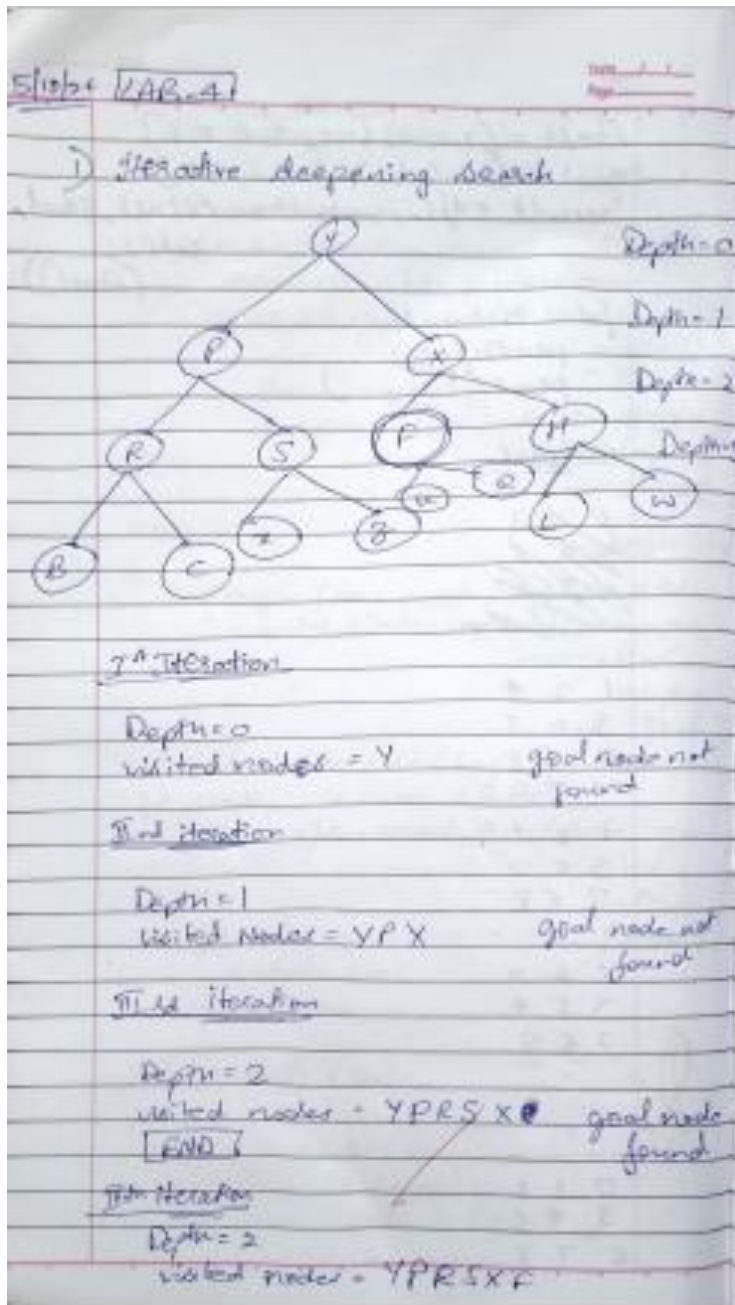 LAB-4
Date
Page
1) Iterative deepening search
Y
Depth = 0
Depth = 1
P X
Depth = 2
R S F H
Depth =
B C z 3 L W
Ist Iteration
Depth = 0
visited nodes = Y goal node not
found
IInd iteration
Depth = 1
visited Nodes = Y P X goal node not
found
III rd iteration
Depth = 2
visited nodes = Y P R S X goal node
found
END
iteration
Depth = 2
visited nodes = Y P R S X F